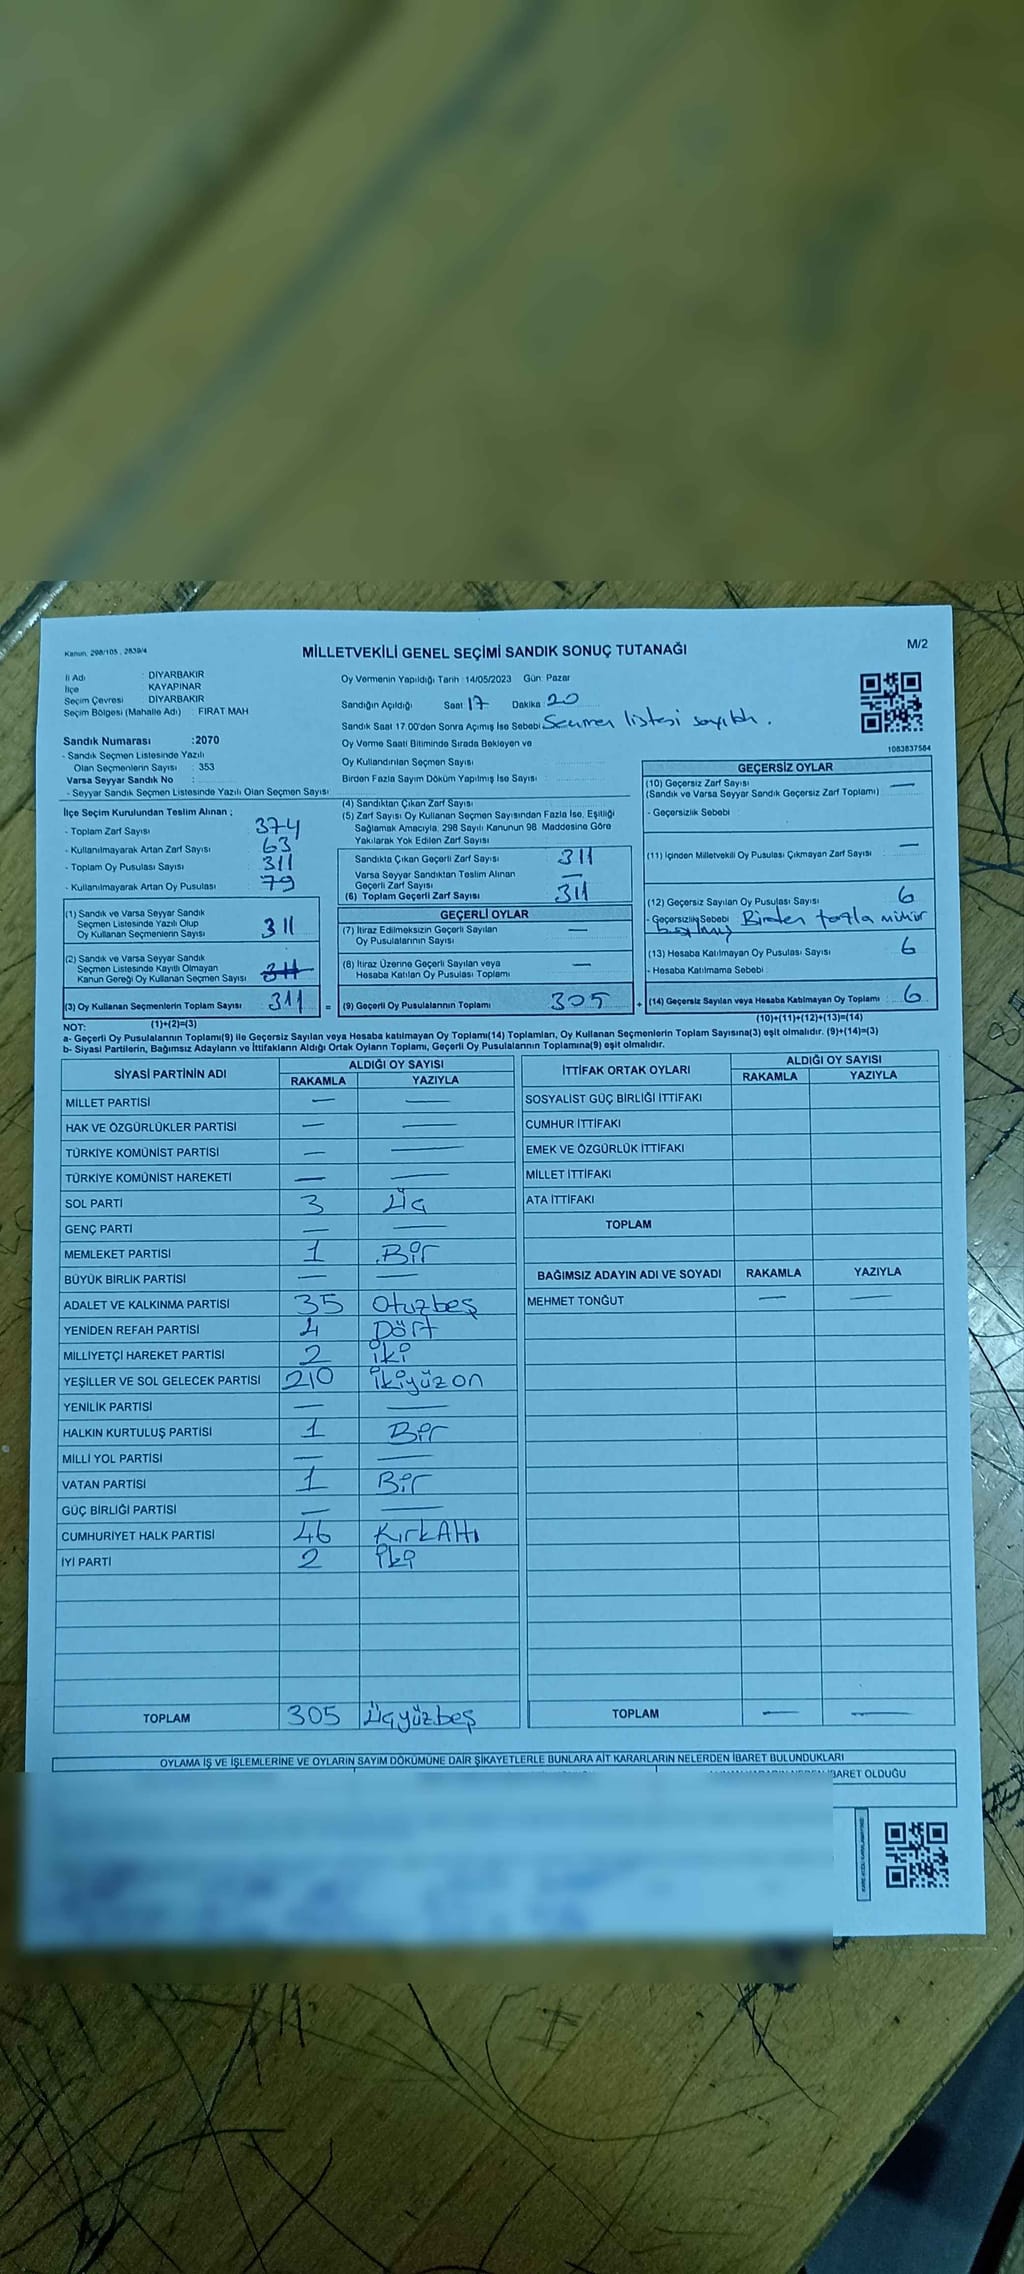 Kanun, 298/105 , 2839/4
MİLLETVEKİLİ GENEL SEÇİMİ SANDIK SONUÇ TUTANAĞI
M/2
İl Adı : DİYARBAKIR
İlçe KAYAPINAR
Seçim Çevresi DİYARBAKIR
Seçim Bölgesi (Mahalle Adı) : FIRAT MAH
Oy Vermenin Yapıldığı Tarih :14/05/2023 Gün: Pazar
Sandığın Açıldığı Saat 17 Dakika 20
Sandık Saat 17.00'den Sonra Açımış İse Sebebi Seçmen listesi sayıldı.
Oy Verme Saati Bitiminde Sırada Bekleyen ve
Oy Kullandırılan Seçmen Sayısı
Birden Fazla Sayım Döküm Yapılmış İse Sayısı
1083837584
Sandık Numarası :2070
- Sandık Seçmen Listesinde Yazılı
Olan Seçmenlerin Sayısı : 353
Varsa Seyyar Sandık No :
- Seyyar Sandık Seçmen Listesinde Yazılı Olan Seçmen Sayısı
İlçe Seçim Kurulundan Teslim Alınan ;
- Toplam Zarf Sayısı 374
- Kullanılmayarak Artan Zarf Sayısı 63
- Toplam Oy Pusulası Sayısı 311
- Kullanılmayarak Artan Oy Pusulası 79
(1) Sandık ve Varsa Seyyar Sandık
Seçmen Listesinde Yazılı Olup
Oy Kullanan Seçmenlerin Sayısı 311
(2) Sandık ve Varsa Seyyar Sandık
Seçmen Listesinde Kayıtlı Olmayan
Kanun Gereği Oy Kullanan Seçmen Sayısı 311
(3) Oy Kullanan Seçmenlerin Toplam Sayısı 311 =
(4) Sandıktan Çıkan Zarf Sayısı
(5) Zarf Sayısı Oy Kullanan Seçmen Sayısından Fazla İse, Eşitliği
Sağlamak Amacıyla, 298 Sayılı Kanunun 98. Maddesine Göre
Yakılarak Yok Edilen Zarf Sayısı
Sandıkta Çıkan Geçerli Zarf Sayısı 311
Varsa Seyyar Sandıktan Teslim Alınan
Geçerli Zarf Sayısı —
(6) Toplam Geçerli Zarf Sayısı 311
GEÇERLİ OYLAR
(7) İtiraz Edilmeksizin Geçerli Sayılan
Oy Pusulalarının Sayısı —
(8) İtiraz Üzerine Geçerli Sayılan veya
Hesaba Katılan Oy Pusulası Toplamı —
(9) Geçerli Oy Pusulalarının Toplamı 305 +
GEÇERSİZ OYLAR
(10) Geçersiz Zarf Sayısı —
(Sandık ve Varsa Seyyar Sandık Geçersiz Zarf Toplamı)
- Geçersizlik Sebebi
(11) İçinden Milletvekili Oy Pusulası Çıkmayan Zarf Sayısı —
(12) Geçersiz Sayılan Oy Pusulası Sayısı 6
- Geçersizlik Sebebi Birden fazla mühür
(13) Hesaba Katılmayan Oy Pusulası Sayısı 6
- Hesaba Katılmama Sebebi
(14) Geçersiz Sayılan veya Hesaba Katılmayan Oy Toplamı : 6
NOT: (1)+(2)=(3)
(10)+(11)+(12)+(13)=(14)
a- Geçerli Oy Pusulalarının Toplamı(9) ile Geçersiz Sayılan veya Hesaba katılmayan Oy Toplamı(14) Toplamları, Oy Kullanan Seçmenlerin Toplam Sayısına(3) eşit olmalıdır. (9)+(14)=(3)
b- Siyasi Partilerin, Bağımsız Adayların ve İttifakların Aldığı Ortak Oyların Toplamı, Geçerli Oy Pusulalarının Toplamına(9) eşit olmalıdır.
SİYASİ PARTİNİN ADI ALDIĞI OY SAYISI
RAKAMLA YAZIYLA
MİLLET PARTİSİ — —
HAK VE ÖZGÜRLÜKLER PARTİSİ — —
TÜRKİYE KOMÜNİST PARTİSİ — —
TÜRKİYE KOMÜNİST HAREKETİ — —
SOL PARTİ 3 Üç
GENÇ PARTİ — —
MEMLEKET PARTİSİ 1 Bir
BÜYÜK BİRLİK PARTİSİ — —
ADALET VE KALKINMA PARTİSİ 35 Otuzbeş
YENİDEN REFAH PARTİSİ 4 Dört
MİLLİYETÇİ HAREKET PARTİSİ 2 iki
YEŞİLLER VE SOL GELECEK PARTİSİ 210 ikiyüzon
YENİLİK PARTİSİ — —
HALKIN KURTULUŞ PARTİSİ 1 Bir
MİLLİ YOL PARTİSİ — —
VATAN PARTİSİ 1 Bir
GÜÇ BİRLİĞİ PARTİSİ — —
CUMHURİYET HALK PARTİSİ 46 KırkAltı
İYİ PARTİ 2 iki
TOPLAM 305 Üçyüzbeş
İTTİFAK ORTAK OYLARI ALDIĞI OY SAYISI
RAKAMLA YAZIYLA
SOSYALİST GÜÇ BİRLİĞİ İTTİFAKI
CUMHUR İTTİFAKI
EMEK VE ÖZGÜRLÜK İTTİFAKI
MİLLET İTTİFAKI
ATA İTTİFAKI
TOPLAM
BAĞIMSIZ ADAYIN ADI VE SOYADI RAKAMLA YAZIYLA
MEHMET TONĞUT — —
TOPLAM — —
OYLAMA İŞ VE İŞLEMLERİNE VE OYLARIN SAYIM DÖKÜMÜNE DAİR ŞİKAYETLERLE BUNLARA AİT KARARLARIN NELERDEN İBARET BULUNDUKLARI
İBARET OLDUĞU